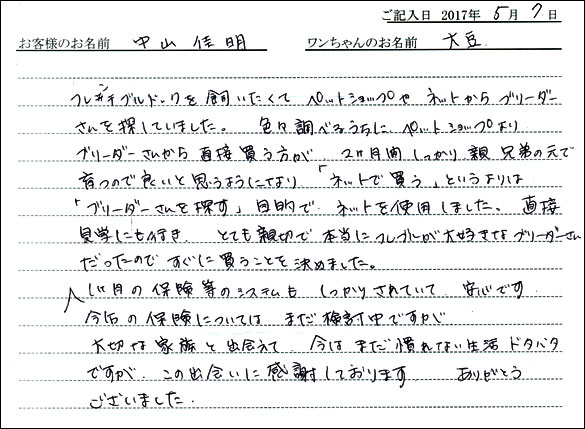 ご記入日 2017年 5月 7日
お客様のお名前 中山 佳明 ワンちゃんのお名前 大豆
フレンチブルドックを飼いたくて ペットショップや ネットから ブリーダー
さんを探していました。 色々調べるうちに ペットショップより
ブリーダーさんから直接買う方が、2ヶ月間しっかり親兄弟の元で
育つので良いと思うようになり 「ネットで買う」というよりは
「ブリーダーさんを探す」目的で ネットを使用しました。 直接
見学にも行き、 とても親切で本当にフレブルが大好きなブリーダーさん
だったので すぐに買うことを決めました。
1ヶ月の保険等のシステムも しっかりされていて 安心です
今后の保険については まだ検討中ですが
大切な家族と出会えて 今は まだ慣れない生活 ドタバタ
ですが、この出会いに感謝しております ありがとう
ございました.